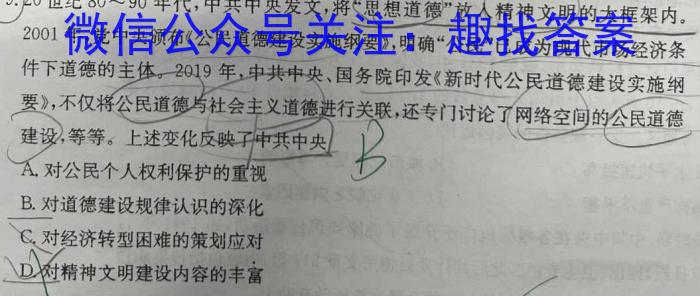 9.20世纪80~90年代,中共中央发文,将“思想道德”放入精神文明的大框架内。
2001年,党中央颁布《公民道德建设实施纲要》,明确“公民”已成为现代市场经济条
微信公众号关注:趣找答案
件下道德的主体。2019年,中共中央、国务院印发《新时代公民道德建设实施纲
要》,不仅将公民道德与社会主义道德进行关联,还专门讨论了网络空间的公民道德
建设,等等。上述变化反映了中共中央
B
A.对公民个人权利保护的重视
B.对道德建设规律认识的深化
C.对经济转型困难的策划应对
D.对精神文明建设内容的丰富